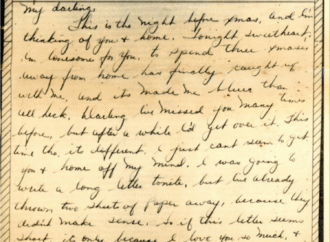 My darling,
This is the night before xmas, and I'm
thinking of you & home. Tonight sweetheart,
I'm lonesome for you. to spend three xmases
away from home has finally caught up
with me, and its made me bluer than
all heck. Darling I've missed you many times
before, but after a while I'd get over it. This
time tho, its different. I just cant seem to get
you & home off my mind. I was going to
write a long letter tonite, but I've already
thrown two sheets of paper away, because they
didnt make sense. So if this letter seems
short its only because I love you so much, &